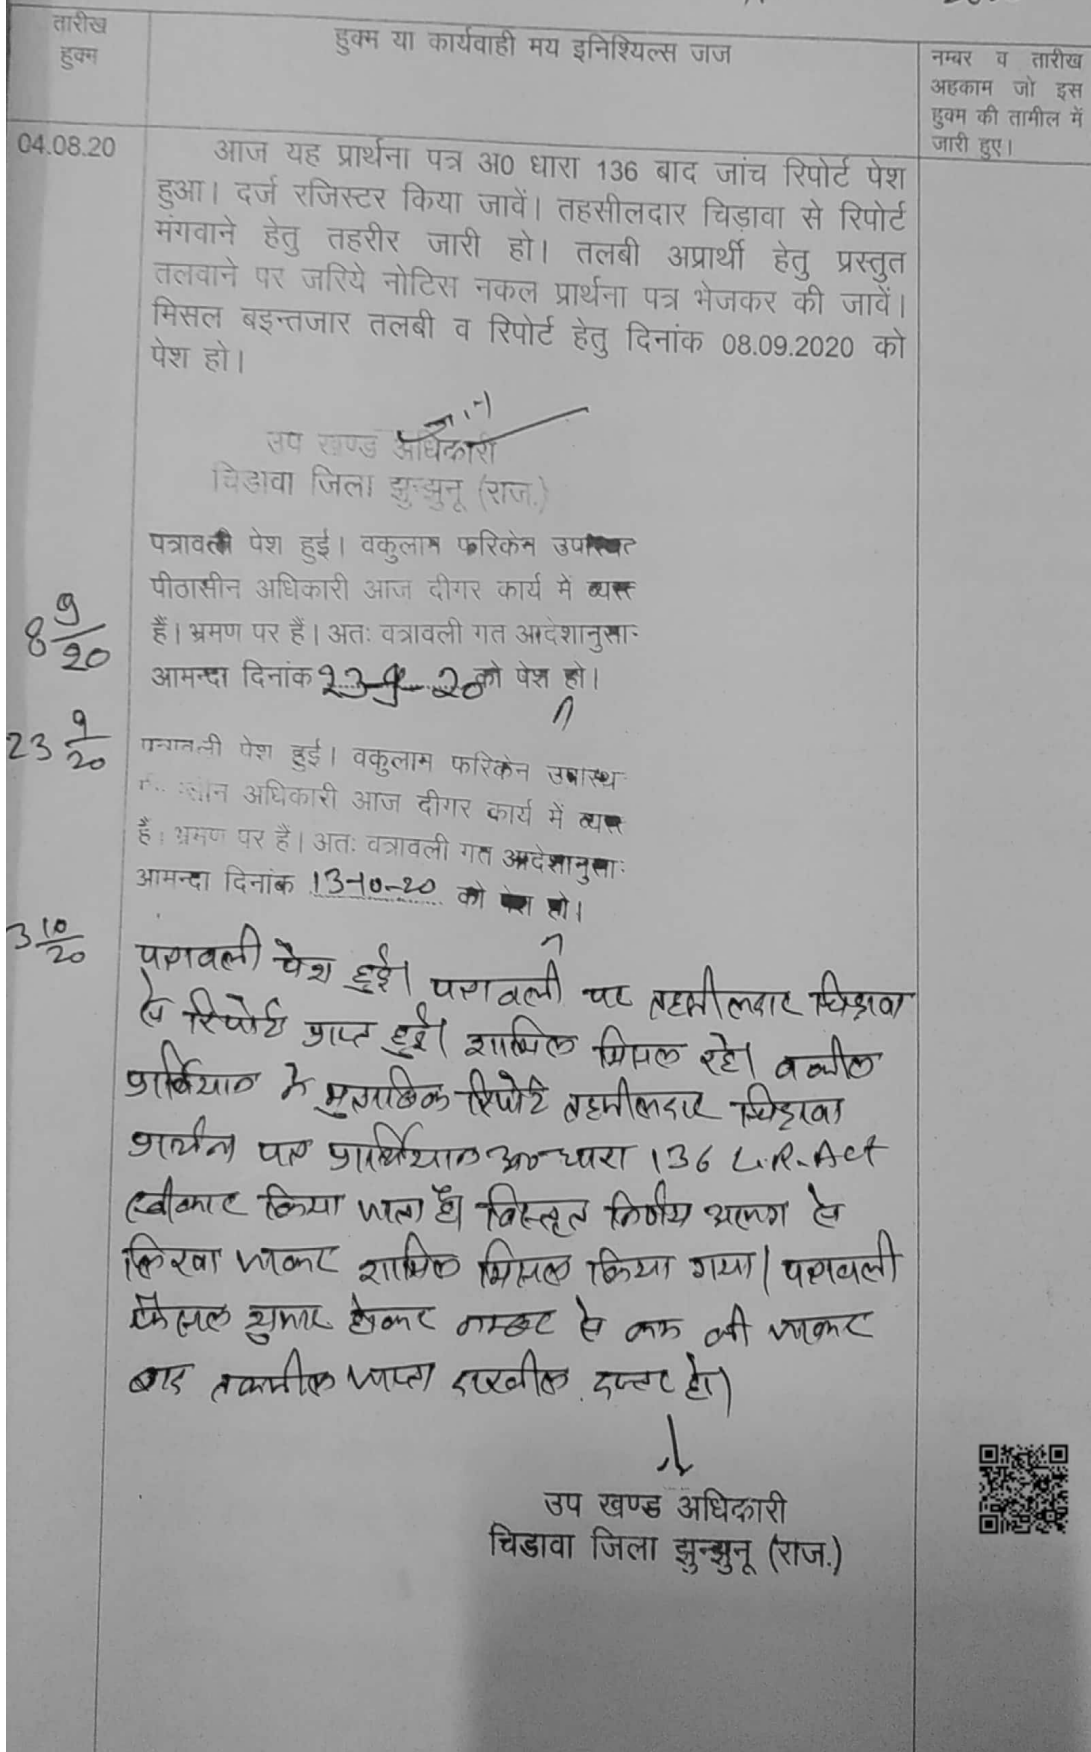 तारीख
हुक्म
हुक्म या कार्यवाही मय इनिश्यिल्स जज
नम्बर व तारीख
अहकाम जो इस
हुक्म की तामील में
जारी हुए।
04.08.20
आज यह प्रार्थना पत्र अ0 धारा 136 बाद जांच रिपोर्ट पेश
हुआ। दर्ज रजिस्टर किया जावें। तहसीलदार चिड़ावा से रिपोर्ट
मंगवाने हेतु तहरीर जारी हो। तलबी अप्रार्थी हेतु प्रस्तुत
तलवाने पर जरिये नोटिस नकल प्रार्थना पत्र भेजकर की जावें।
मिसल बइन्तजार तलबी व रिपोर्ट हेतु दिनांक 08.09.2020 को
पेश हो।
उप खण्ड अधिकारी
चिडावा जिला झुन्झुनू (राज.)
8 9/20
पत्रावली पेश हुई। वकुलाम फरिकेन
पीठासीन अधिकारी आज दीगर कार्य में व्यस्त
हैं। भ्रमण पर हैं। अतः वत्रावली गत आदेशानुसा
आमन्दा दिनांक 23-9-20 को पेश हो।
23 9/20
पेश हुई। वकुलाम फरिकेन
अधिकारी आज दीगर कार्य में व्यस्त
हैं। भ्रमण पर हैं। अतः वत्रावली गत आदेशानुसा
आमन्दा दिनांक 13-10-20 को पेश हो।
3 10/20
पत्रावली पेश हुई। पत्रावली पर तहसीलदार चिड़ावा
से रिपोर्ट प्राप्त हुई। शामिल मिसल रहे। वकील
प्रार्थियान के मुताबिक रिपोर्ट तहसीलदार चिड़ावा
प्रार्थना पत्र प्रार्थियान अ0 धारा 136 L.R. Act
स्वीकार किया जाता है। विस्तृत निर्णय अलग से
लिखा जाकर शामिल मिसल किया गया। पत्रावली
फैसल शुमार होकर नम्बर से कम की जाकर
बाद तकमील जाप्ता दाखील दफ्तर हो।
उप खण्ड अधिकारी
चिडावा जिला झुन्झुनू (राज.)